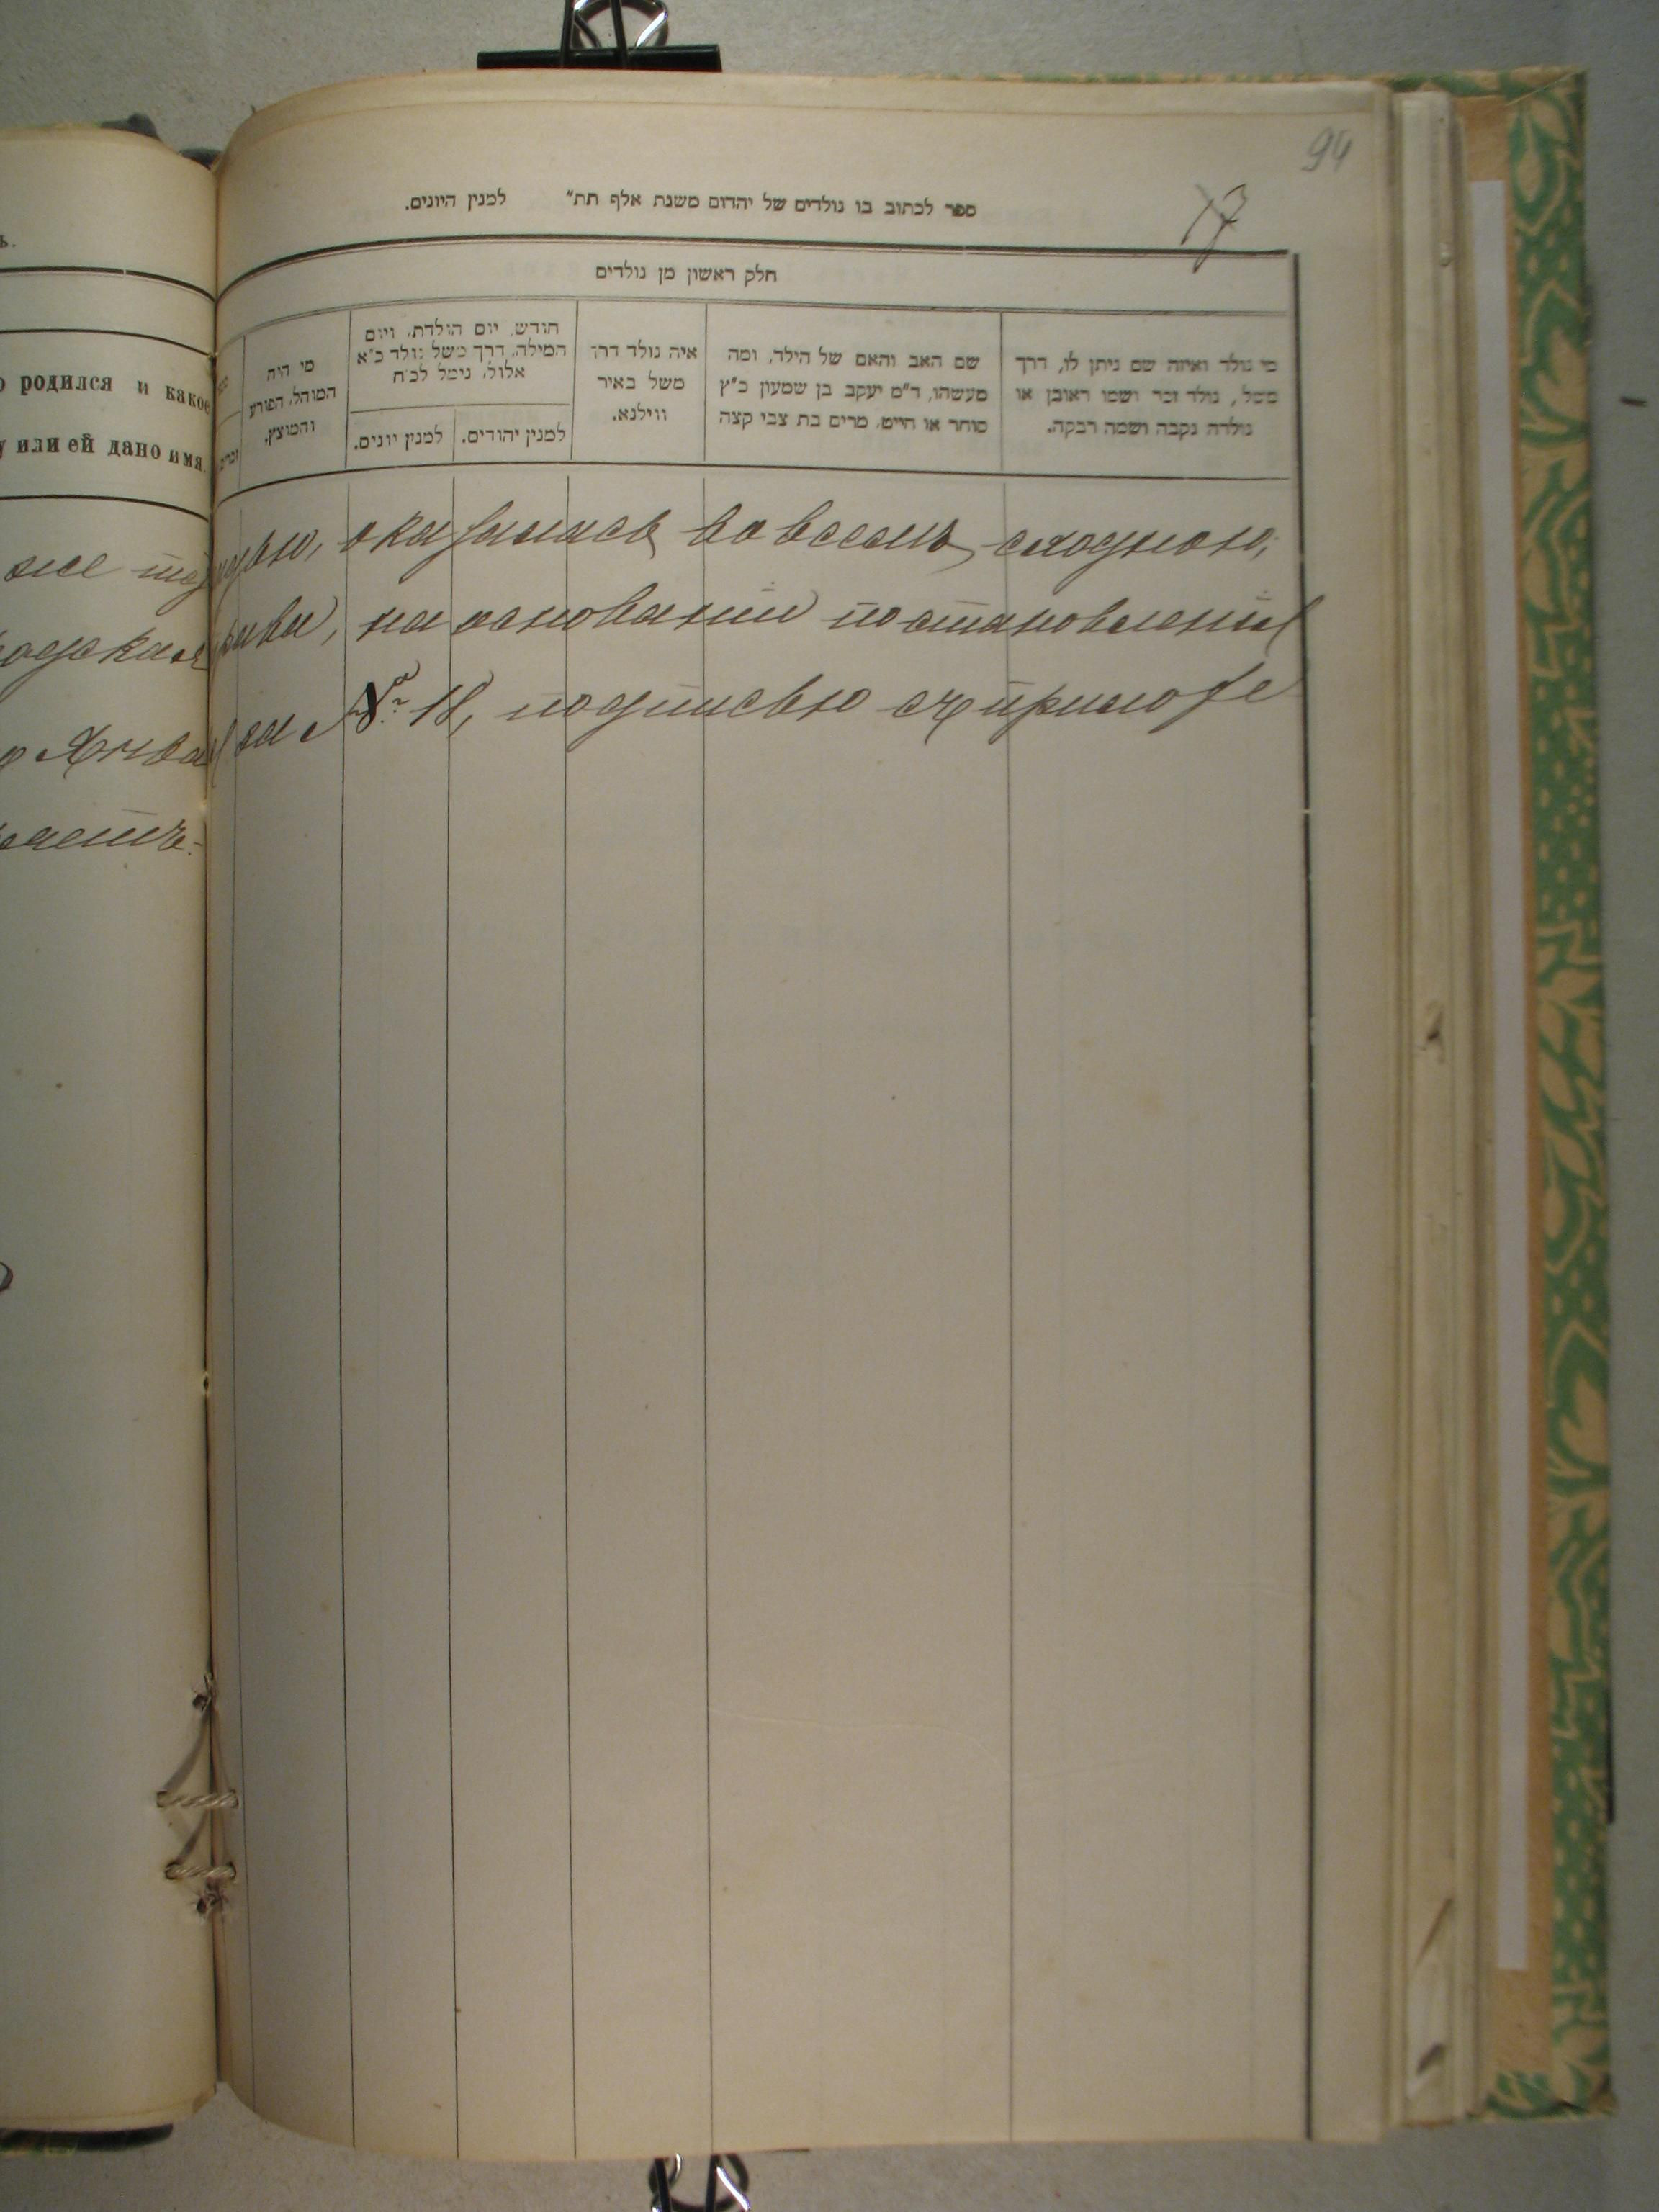 94
17
ספר לכתוב בו נולדים של יהדום משנת אלף תת״ למנין היונים.
חלק ראשון מן נולדים
מי נולד ואיזה שם ניתן לו, דרך
משל, נולד זכר ושמו ראובן או
נולדה נקבה ושמה רבקה.
שם האב והאם של הילד, ומה
מעשהו, ד״מ יעקב בן שמעון כ״ץ
סוחר או חייט, מרים בת צבי קצה
איה נולד דרך
משל באיר
ווילנא.
חודש, יום הולדת, ויום
המילה, דרך משל נולד כ״א
אלול, נימל לכ״ח
למנין יהודים.
למנין יונים.
מי היה
המוהל, הפורע
והמוצץ.
родился и какое
или ей дано имя.
же
оказалась во всемъ сходною,
на основании постановления
за № 18, подписью